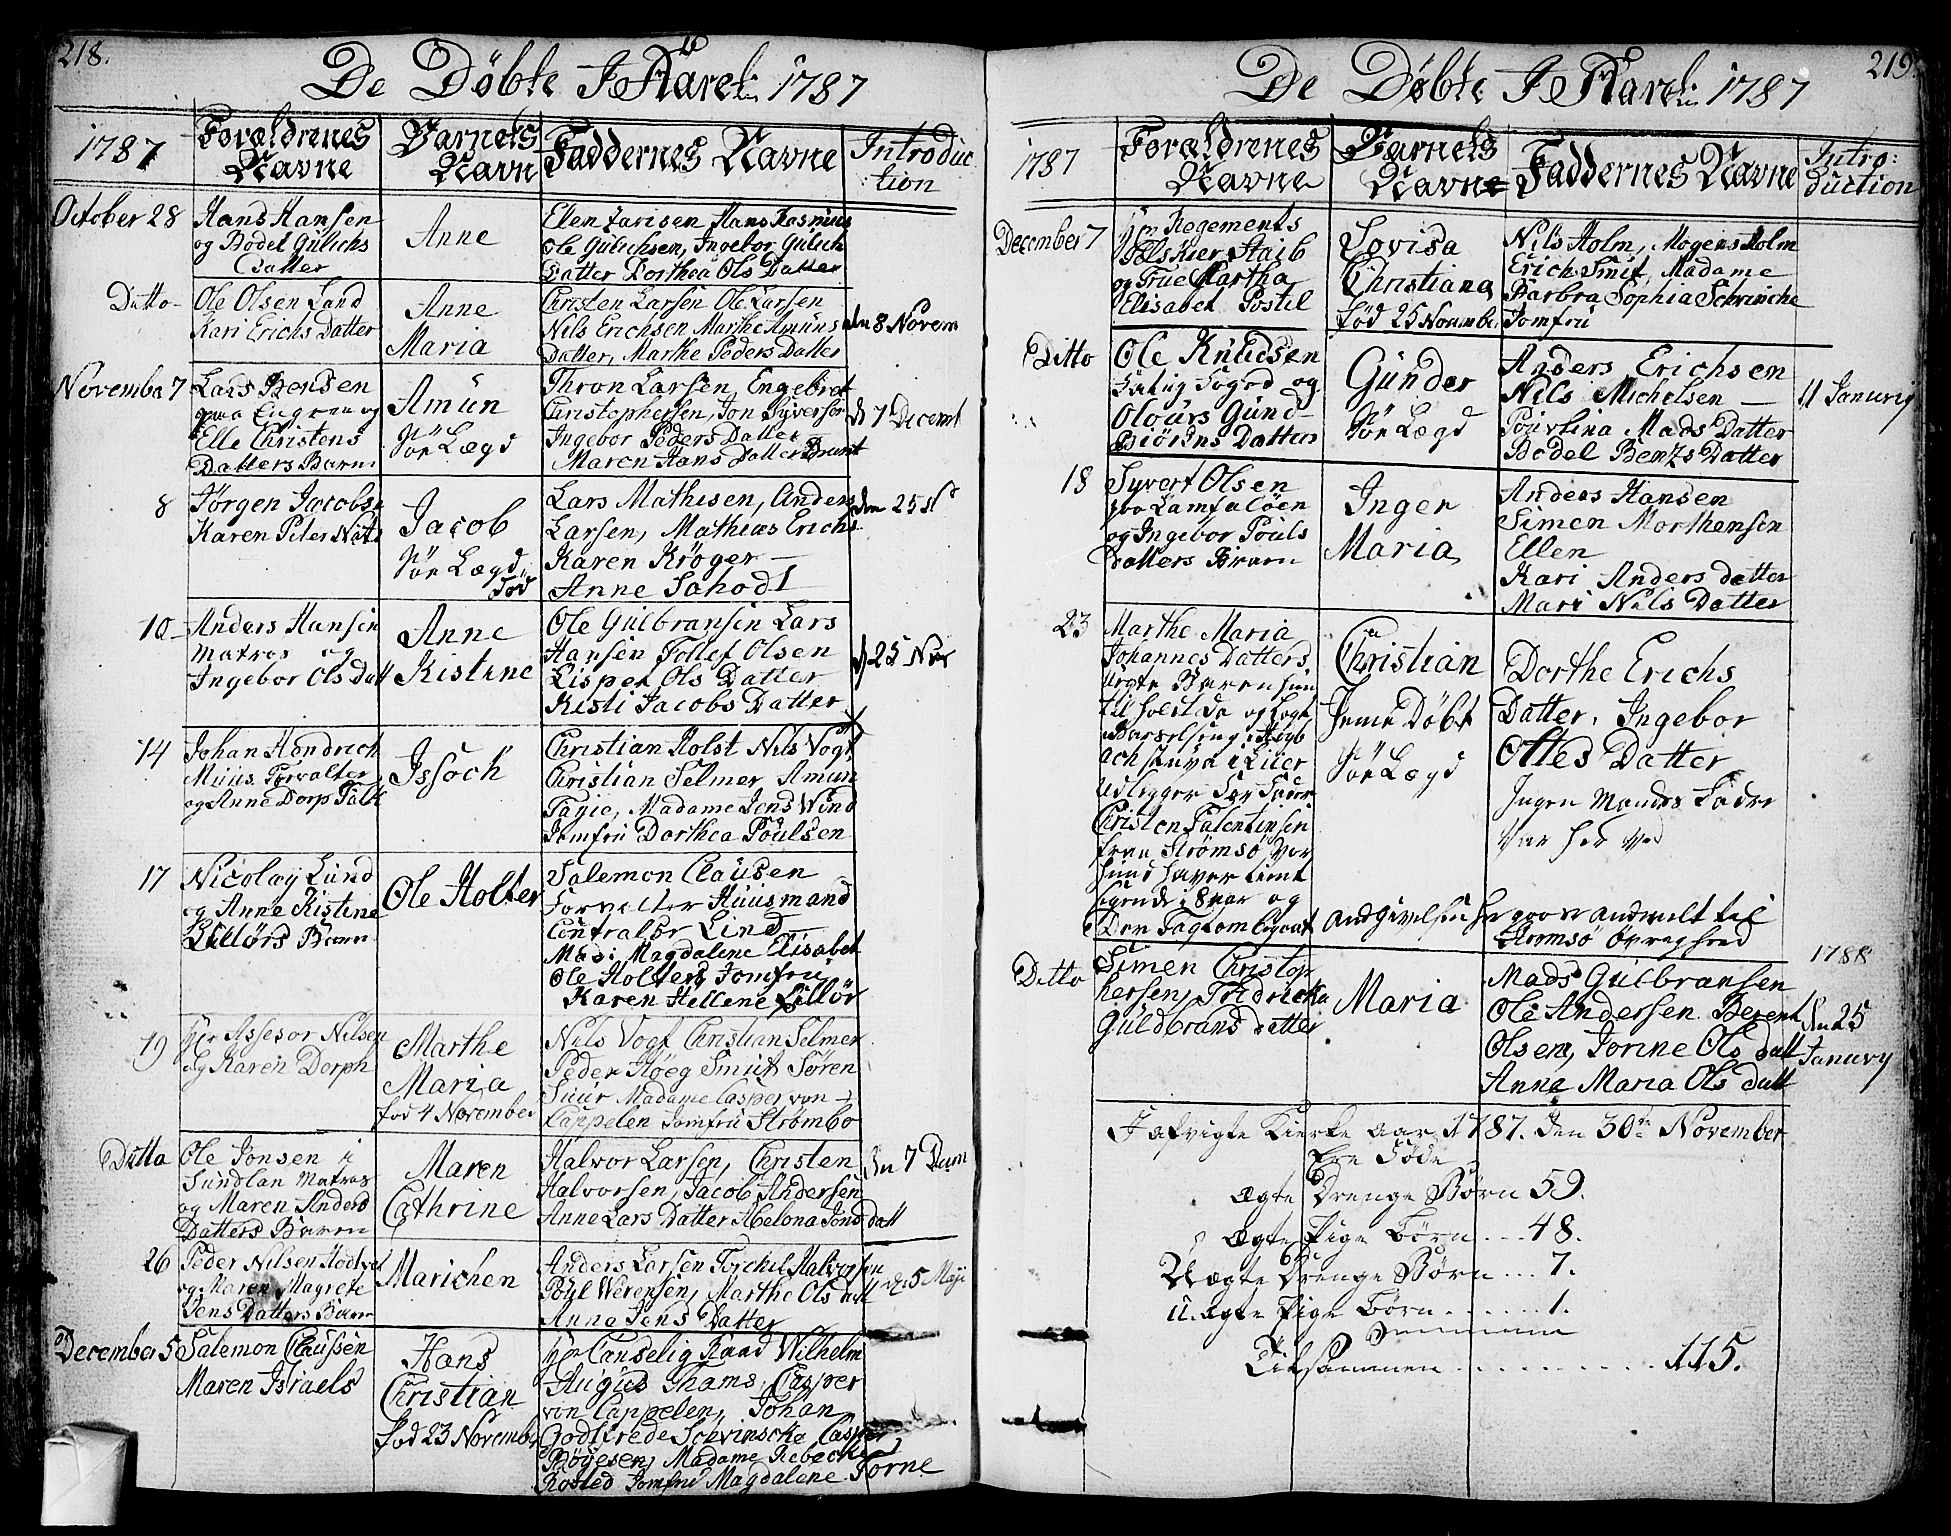 218.
De Døbte I Aaret 1787
1787
Forældrenes Navne
Barnets Navn
Faddernes Navne
Introduction
October 28
Hans Hansen
og Bodel Gulichs
Datter
Anne
Elen Larisen Hans Rasmus
Ole Gulichsen, Ingebor Gulich
Datter Dorthea Ols Datter
Ditto
Ole Olsen Lund
Kari Erichs Datter
Anne
Maria
Christen Larsen Ole Larsen
Nils Erichsen Marthe Amuns
Datter, Marthe Peders Datter
den 8 Novem
November 7
Lars Bensen
paa Engen og
Elle Christens
Datters Barn
Amun
Før Lægd
Thron Larsen, Engebret
Christophersen, Jon Syversen
Ingebor Peders Datter
Maren Hans Datter
d 7 Decemt
8
Jørgen Jacobs
Karen Peter Nils
Jacob
Før Lægd
Død
Lars Mathisen, Anders
Larsen, Mathias Erichs
Karen Krøger
Anne Sahodt
den 25 N
10
Anders Hansen
Matros og
Ingebor Ols Datt
Anne
Kistine
Ole Gulbransen Lars
Hansen Tollef Olsen
Lisped Ols Datter
Kisti Jacobs Datter
d 25 Nov
14
Johan Hendrich
Muus Forvalter
og Anne Dorp Falk
Issoch
Christian Holst Nils Vogt
Christian Selmer Amun
Tagie, Madame Jens Wind
Jomfru Dorthea Poulsen
17
Nicolay Lund
og Anne Kistine
Lillørs Barn
Ole Holter
Salemon Clausen
Forvalter Huusmand
Contralør Lind
Madi Magdalene Elisabet
Ole Holters Jomfru
Karen Hellene Lillør
19
Hr Assesor Nilsen
og Karen Dorph
Marthe
Maria
fød 4 November
Nils Vogt Christian Selmer
Peder Høeg Smut Søren
Suur Madame Casper von
Cappelen Jomfru Strømbo
Ditto
Ole Jonsen i
Sundlan Matros
og Maren Anders
Datters Barn
Maren
Cathrine
Halvor Larsen, Christen
Halvorsen, Jacob Andersen
Anne Lars Datter Abelona Jons datt
den 7 Decem
26
Peder Nilsen Hodtvet
og Maren Magrete
Jens Datters Barn
Marichen
Anders Larsen Torckel Halvorsen
Poul Werensen, Marthe Ols datt
Anne Jens Datter
den 5 Maji
December 5
Salemon Claussen
Maren Israels
Hans
Christian
fød 23 November
Hr Canselig Raad Wilhelm
August Thams, Casper
von Cappelen, Johan
Godtfrede Schvinscke Casper
Bøyesen, Madame Rebecka
Rosted Jomfru Magdalene Torne
219.
De Døbte I Aaret 1787
1787
Forældrenes Navne
Barnets Navne
Faddernes Navne
Introduction
December 7
Hr Regements
Feltskier Staib
og Frue Martha
Elisabet Postel
Lovisa
Christiana
fød 25 November
Nils Holm, Mogens Holm
Erich Smit, Madame
Barbra Sophia Schvinche
Jomfru
Ditto
Ole Knudsen
og
Olours Gund
Biørens Datters
Gunder
Før Lægd
Anders Erichsen
Nils Michelsen
Pourlina Mads Datter
Bodel Bentzs Datter
11 Januarij
18
Syvert Olsen
paa Lamfaløen
og Ingebor Pouls
Datters Barn
Inger
Maria
Anders Hansen
Simen Morthensen
Ellen
Kari Anders datter
Mari Nils Datter
23
Marthe Maria
Johannes Datters
Uægte Barn hun
Barselseng i Høyb
i Lier
udlegger for Fader
Christen Falentinsen
fraa Strømsø
Christian
Hieme Døbt
Før Lægd
Dorthe Erichs
Datter, Ingebor
Ottes Datter
Ingen Mands Fadre
var her ved
i 8 aar og
Andgivelsen her paa er andmelt til
Strømsø Øvrighed
Ditto
Simen Christop
hersen, Fredricka
Guldbrans datter
Maria
Mads Gulbransen
Ole Andersen Berent
Olsen, Jorine Ols datt
Anne Maria Ols datt
1788
den 25
Januarij
I afvigte Kirke aar 1787. den 30te November
Ere Føde
Ægte Drenge Børn 59.
Ægte Pige Børn ... 48.
Uægte Drenge Børn ... 7.
U. ægte Pige Børn ...... 1.
Tilsammen .......... 115.